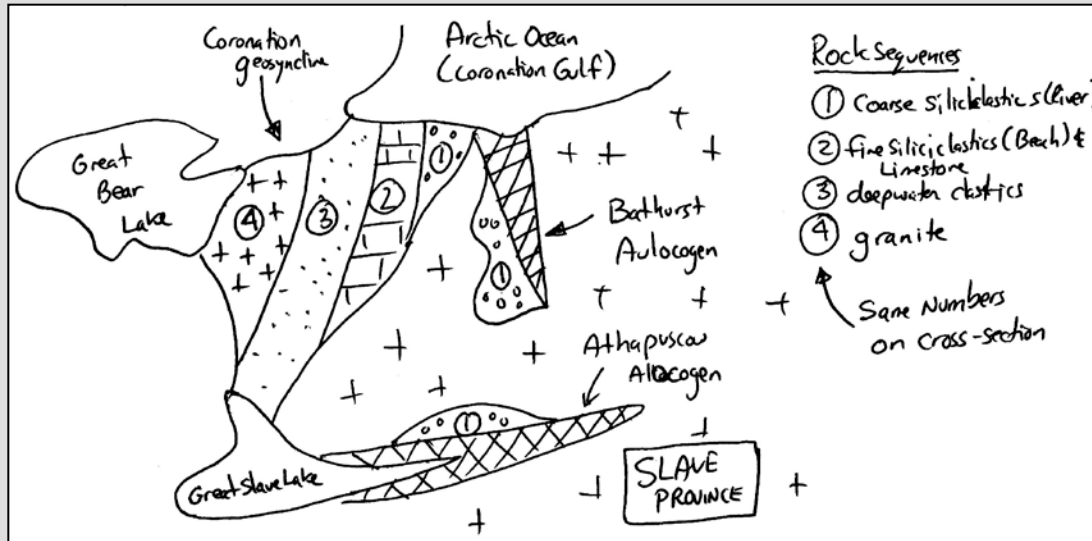 Coronation
geosyncline
Arctic Ocean
(Coronation Gulf)
Great
Bear
Lake
4
3
2
1
1
Bathurst
Aulocogen
Athapuscow
Allocogen
1
Great Slave Lake
SLAVE
PROVINCE
Rock Sequences
1 Coarse Siliciclastics (River)
2 fine Siliciclastics (Beach) &
Limestone
3 deepwater clastics
4 granite
Same Numbers
on cross-section